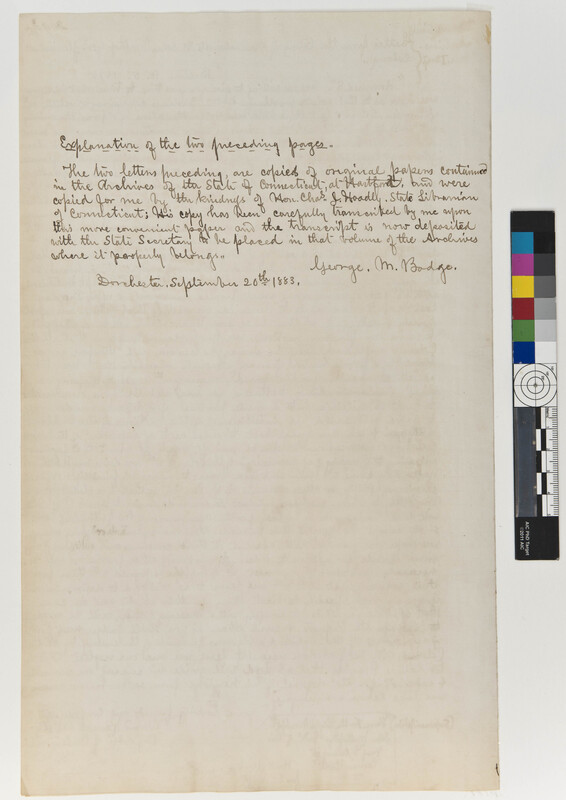 Explanation of the two preceding pages.
The two letters preceding, are copies of original papers contained
in the Archives of the State of Connecticut, at Hartford, and were
copied for me by the kindness of Hon. Chas J. Hoadly, State Librarian
of Connecticut; His copy has been carefully transcribed by me upon
this more convenient paper and the transcript is now deposited
with the State Secretary to be placed in that volume of the Archives
where it properly belongs.
George. M. Bodge.
Dorchester, September 20th 1883.
AIC PhD Target
©2011 AIC